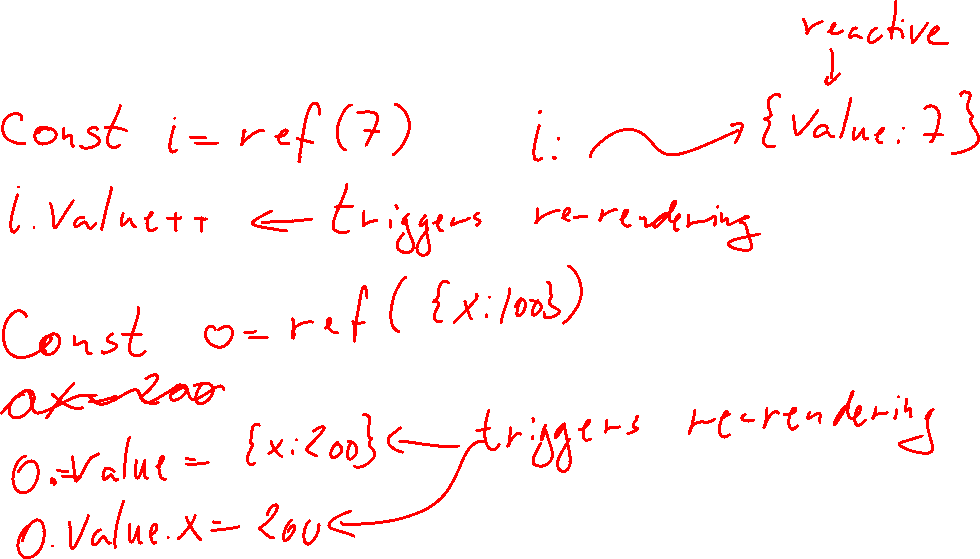 reactive
const i = ref(7) i: {value: 7}
i.value++ ← triggers re-rendering
const o = ref({x:100})
o.x = 200
o.value = {x:200} ← triggers re-rendering
o.value.x = 200 ←